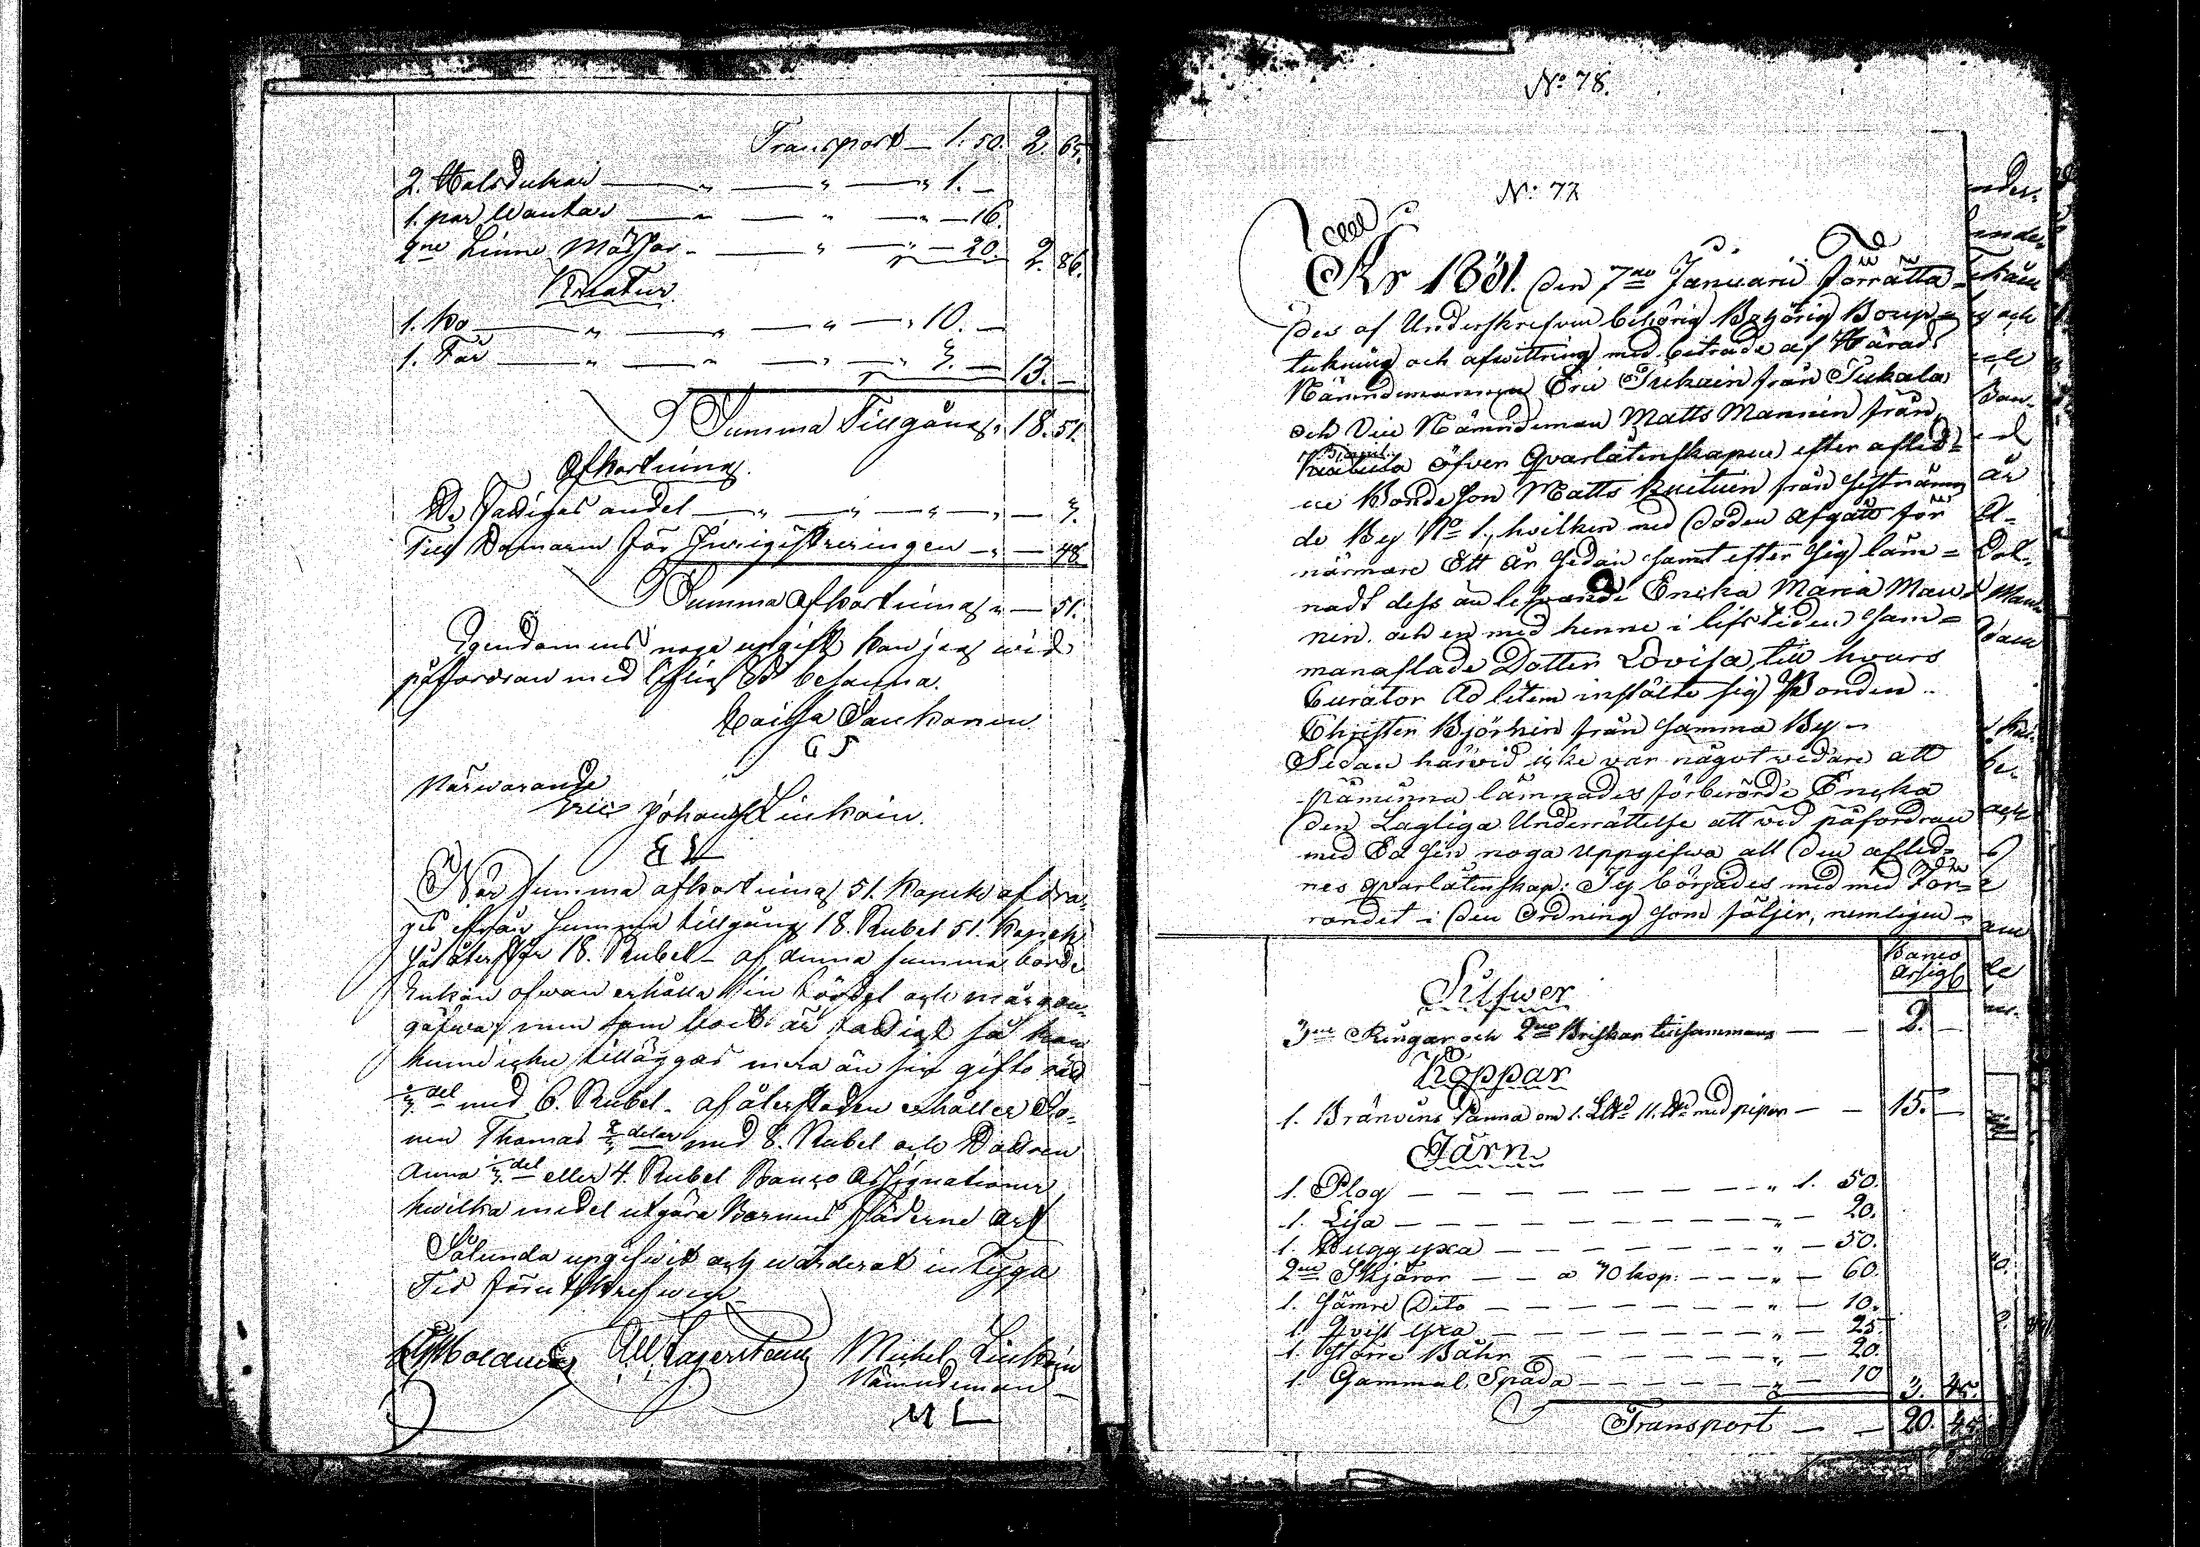 Transport — 1. 50. 2. 65.
2. Halsdukar — " — " — " 1. —
1. par Wantar — " — " — " — 16.
2ne Linne Mössor — " — " — 20. 2. 86.
Kreatur
1. Ko — " — " — " — " 10. —
1. Får — " — " — " — " 3. — 13. —
Summa Tillgång " 18. 51.
Afkortning
De Fattigas andel — " — " — " — " — 3.
Till Domaren för Inregistreringen — " — 48
Summa Afkortning " — 51.
Egendomens noga upgift kan jag wid
påfordran med liflig Ed besanna.
Caisa Saukonen
Närwarande
Eric Johans Linkoin.
E L
När summa afkortning 51. Kopek afdra-
ges ifrån summa tillgång 18. Rubel 51. Kopek
så återstår 18. Rubel — af denna summa borde
Enkan ofwan erhålla sin och morgon-
gåfwa, men som boet är fattigt så kan
henne icke tilläggas mera än sin gifto rätt
1/3 del med 6. Rubel. af återstoden erhåller So-
nen Thomas 2/3 delar med 8. Rubel och Dottren
Anna 1/3 del eller 4. Rubel Banco Assignationer
hwilka medel utgöra Barnens Fäderne Arf
Sålunda upgifwit och wärderat intyga
Tid förutskrefwen
Michel Linkoin
Nämndeman
M L
No. 78.
No. 77
År 1831. den 7de Januarii förrätta-
des af Underskrefven behörig Boup-
tekning och afwittring med biträde af Härads
Nämndemannen Eric Tukain från Tukala
och Vice Nämndeman Matts Mannin från
öfver Qvarlåtenskapen efter afled-
ne Bonde Son Matts från sistnämn
de By No 1., hvilken med döden afgått för
närmare Ett år sedan samt efter sig läm-
nadt dess än lefvande Encka Maria Man-
nin och en med henne i lifstiden sam-
manaflade Dotter Lovisa, till hvars
Curator Ad litem instälte sig Bonden
Christer Björkin från samma By —
Sedan härvid icke var något vidare att
påminna lämnades förberörde Encka
den Lagliga Underrättelse att vid påfordran
med Ed sin noga Uppgifwa all den afled-
nes qvarlåtenskap: Ty börjades med med För-
randet i den Ordning som följer, nemligen —
Banco
Assigt
Silfwer
3ne Ringar och 2ne Briskor tillsammans — — 2. —
Koppar
1. Bränvins Panna om 1. L℔ 11. ℔ med pipor — — 15. —
Järn
1. Plog — — — — — — — " 1. 50.
1. Lija — — — — — — — " — 20.
1. Huggyxa — — — — — — " — 50.
2ne Skjäror — — a 30 kop: — — " — 60.
1. Sämre Dito — — — — — — " — 10.
1. Qvist yxa — — — — — — " — 25.
1. Större Båhr — — — — — — " — 20.
1. Gammal Spada — — — — — " — 10 3. 45.
Transport — — 20. 45.